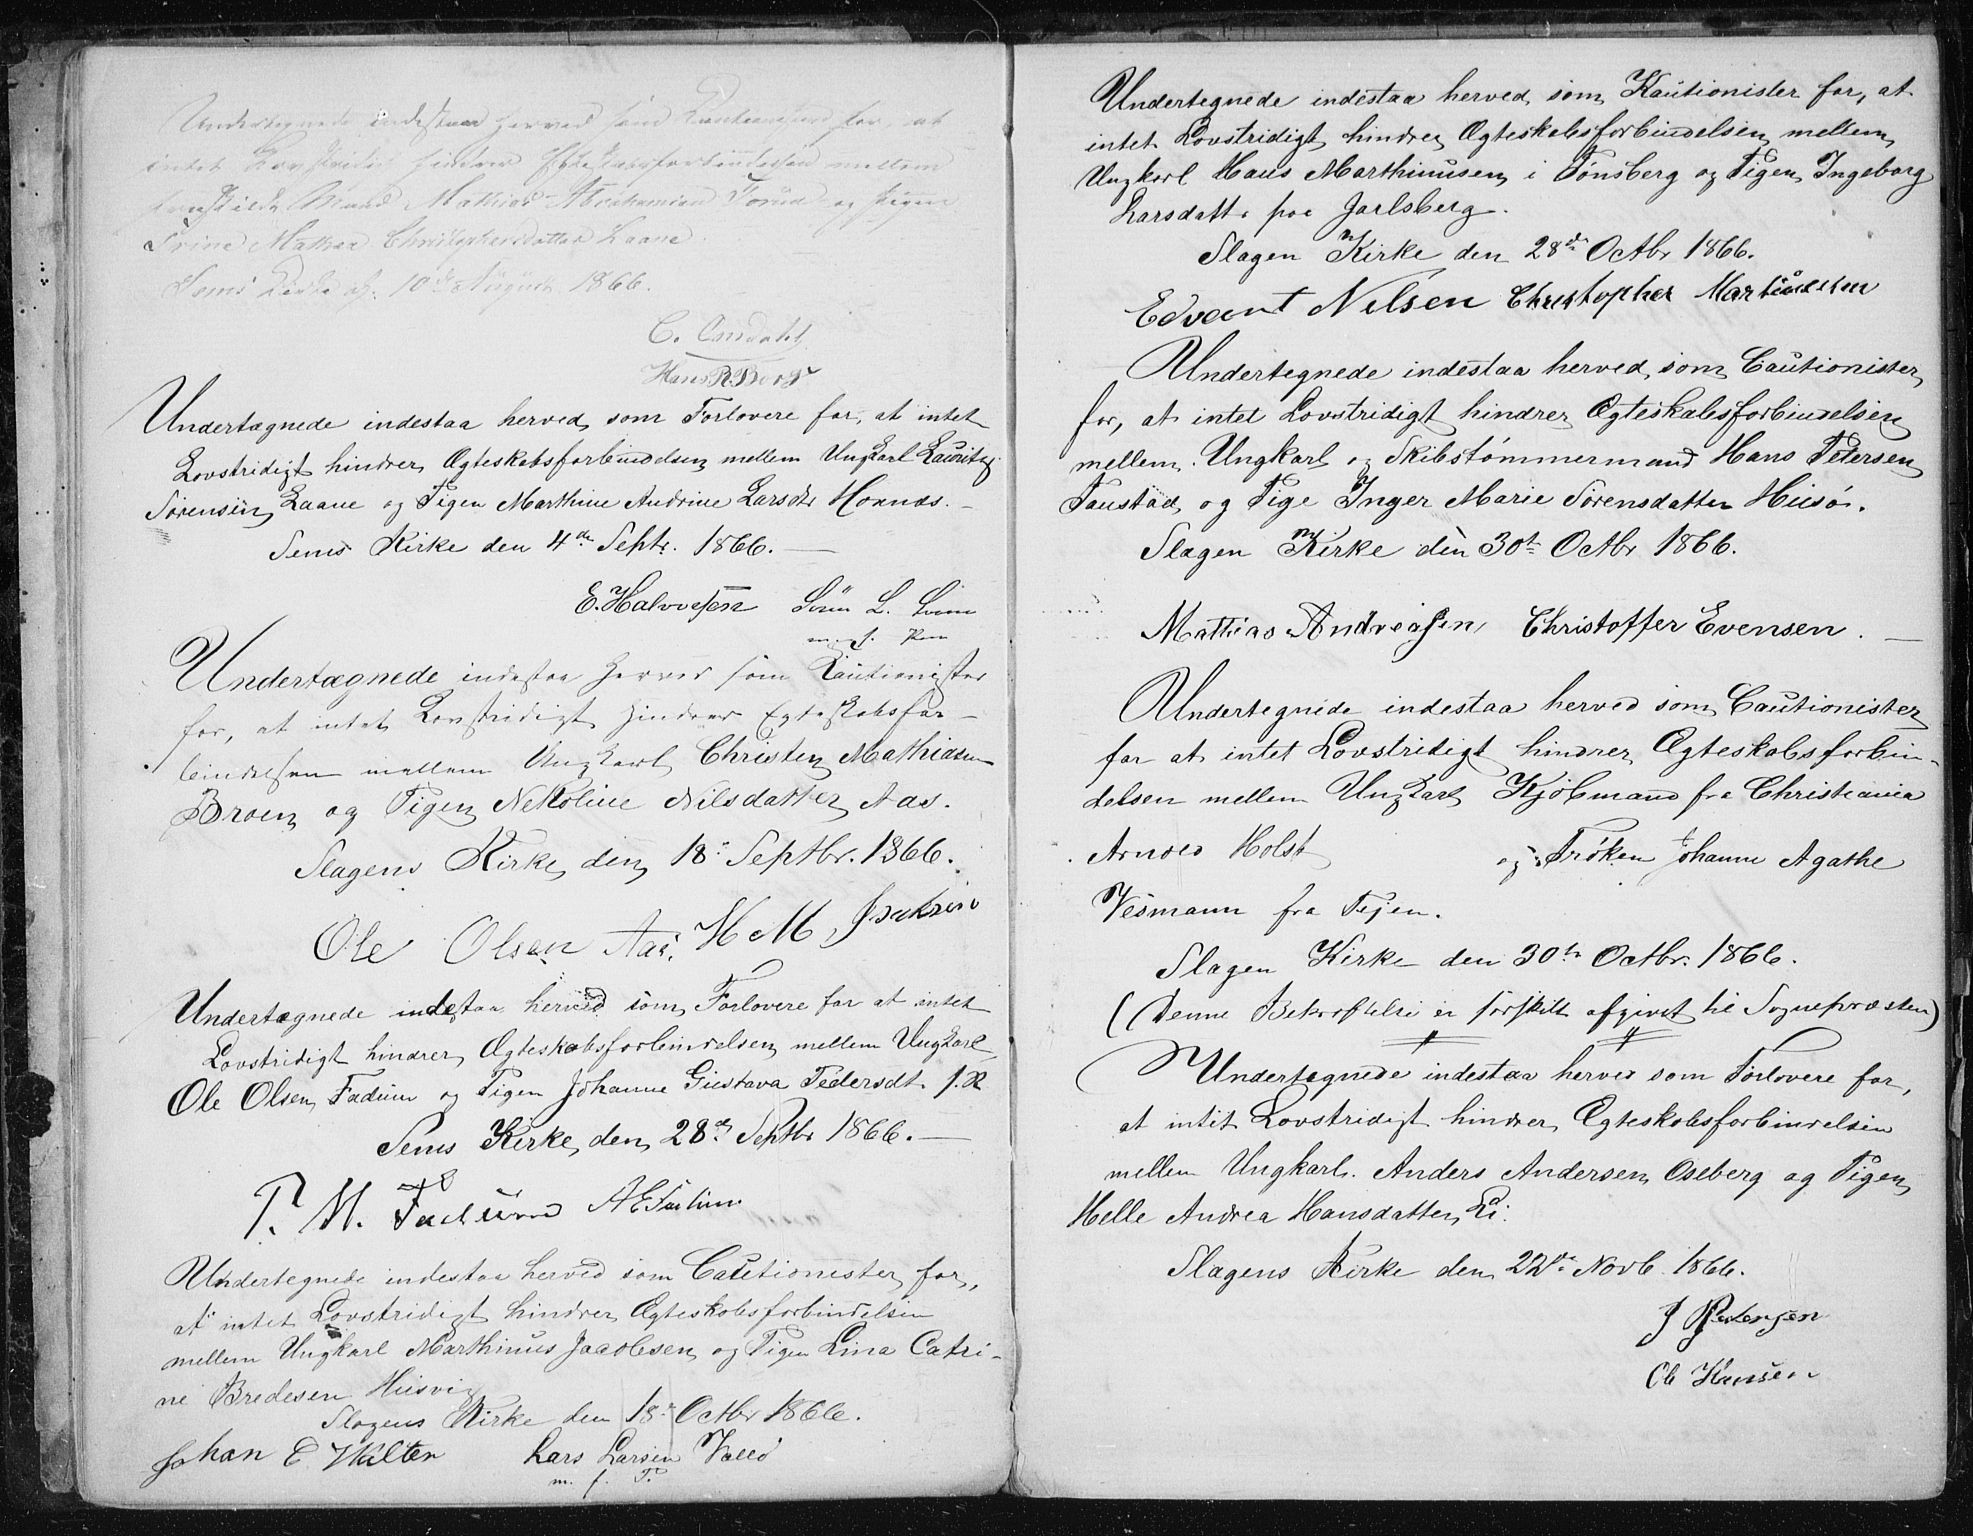 Undertegnede indestaar herved som Kautionister for, at
intet Lovstridigt hindrer Egteskabsforbindelsen mellem
fraskilde Mand Mathias Abrahamsen Torød og Pigen
Trine Mathea Christophersdatter Laane
Sems Kirke d. 10de August 1866.
C. Omdahl
Hans R Borge
Undertægnede indestaa herved som Forlovere for, at intet
Lovstridigt hindrer Ægteskabsforbindelsen mellem Ungkarl Lauritz
Sørensen Laane og Pigen Marthine Andrine Larsdtr Hoknæs.
Sems Kirke den 4de Septr. 1866.
E. Halvorsen Sørn L.
m. f. Pen
Undertægnede indestaa herved som Kautionister
for, at intet Lovstridigt hindrer Egteskabsfor-
bindelsen mellem Ungkarl Christen Mathiasen
Broen og Pigen Nekoline Nilsdatter Aas.
Slagens Kirke den 18de Septbr. 1866.
Ole Olsen Aas. H M Jsaksen
Undertægnede indestaa herved som Forlovere for at intet
Lovstridigt hindrer Ægteskabsforbindelsen mellem Ungkarl
Ole Olsen Fadum og Pigen Johanne Gustava Pedersdt. f. R
Sems Kirke den 28de Septbr 1866.
P. M. Fadum A E Fadum
Undertegnede indestaa herved som Cautionister for,
at intet Lovstridigt hindrer Ægteskabsforbindelsen
mellem Ungkarl Marthinus Jacobsen og Pigen Lina Catri-
ne Bredesen Husvig
Slagens Kirke den 18de Octbr 1866.
Johan E Walter Lars Larsen Vallø
m. f. P.
Undertegnede indestaa herved som Kautionister for, at
intet Lovstridigt hindrer Ægteskabsforbindelsen mellem
Ungkarl Hans Marthinusen i Tønsberg og Pigen Ingeborg
Larsdatter paa Jarlsberg.
Slagen Kirke den 28de Octbr 1866.
Edvant Nilsen Christopher Martinesen
Undertegnede indestaa herved som Cautionister
for, at intet Lovstridigt hindrer Ægteskabsforbindelsen
mellem Ungkarl og Skibstømmermand Hans Petersen
Taustad og Pige Inger Marie Sørensdatter Husø.
Slagen Kirke den 30te Octbr 1866.
Mathias Andreasen Christoffer Evensen.
Undertegnede indestaa herved som Cautionister
for at intet Lovstridigt hindrer Ægteskabsforbin-
delsen mellem Ungkarl Kjøbmand fra Christiania
Arnold Holst og Frøken Johanne Agathe
Vesmann fra Tejen.
Slagen Kirke den 30te Octbr. 1866.
(Denne Bekræftelse er særskilt afgivet til Sognepræsten)
Undertegnede indestaa herved som Forlovere for,
at intet Lovstridigt hindrer Ægteskabsforbindelsen
mellem Ungkarl Anders Andersen Oseberg og Pigen
Helle Andrea Hansdatter Li.
Slagens Kirke den 22de Novb. 1866.
J Pedersen
Ol Hansen